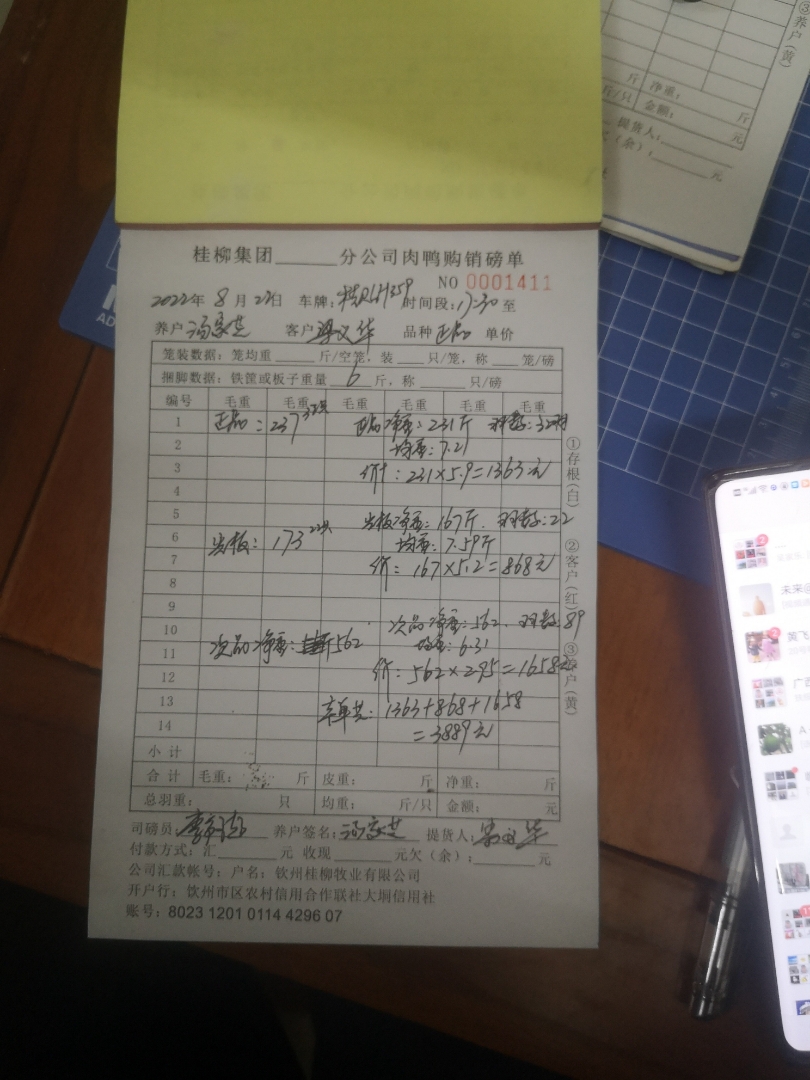 桂柳集团______分公司肉鸭购销磅单
NO 0001411
2022年 8月27日 车牌: 时间段:17:30 至
养户 客户 梁义华 品种 正品 单价
笼装数据:笼均重____斤/空笼,装____只/笼,称____笼/磅
捆脚数据:铁筐或板子重量 6 斤,称____只/磅
编号 毛重 毛重 毛重 毛重 毛重 毛重
1 正品:237 32只 正品净重:231斤 羽数:32羽
2 均重:7.21
3 价:231×5.9=1363元
4
5 净重:167斤. 羽数:22
6 173 22只 均重:7.59斤
7 价:167×5.2=868元
8
9
10 次品净重:562. 羽数89
11 次品净重:562 均重:6.31
12 价:562×2.95=1658元
13 车单共:1363+868+1658
14 =3889元
小计
合计 毛重: 斤 皮重: 斤 净重: 斤
总羽重: 只 均重: 斤/只 金额: 元
司磅员 养户签名: 提货人:
付款方式:汇______元 收现______元欠(余):______元
公司汇款帐号:户名:钦州桂柳牧业有限公司
开户行:钦州市区农村信用合作联社大垌信用社
账号:8023 1201 0114 4296 07
①存根(白)
②客户(红)
③养户(黄)
③养户(黄)
斤 净重: 斤
斤/只 金额: 元
提货人:
欠(余): 元
未来@
黄飞
广西
A